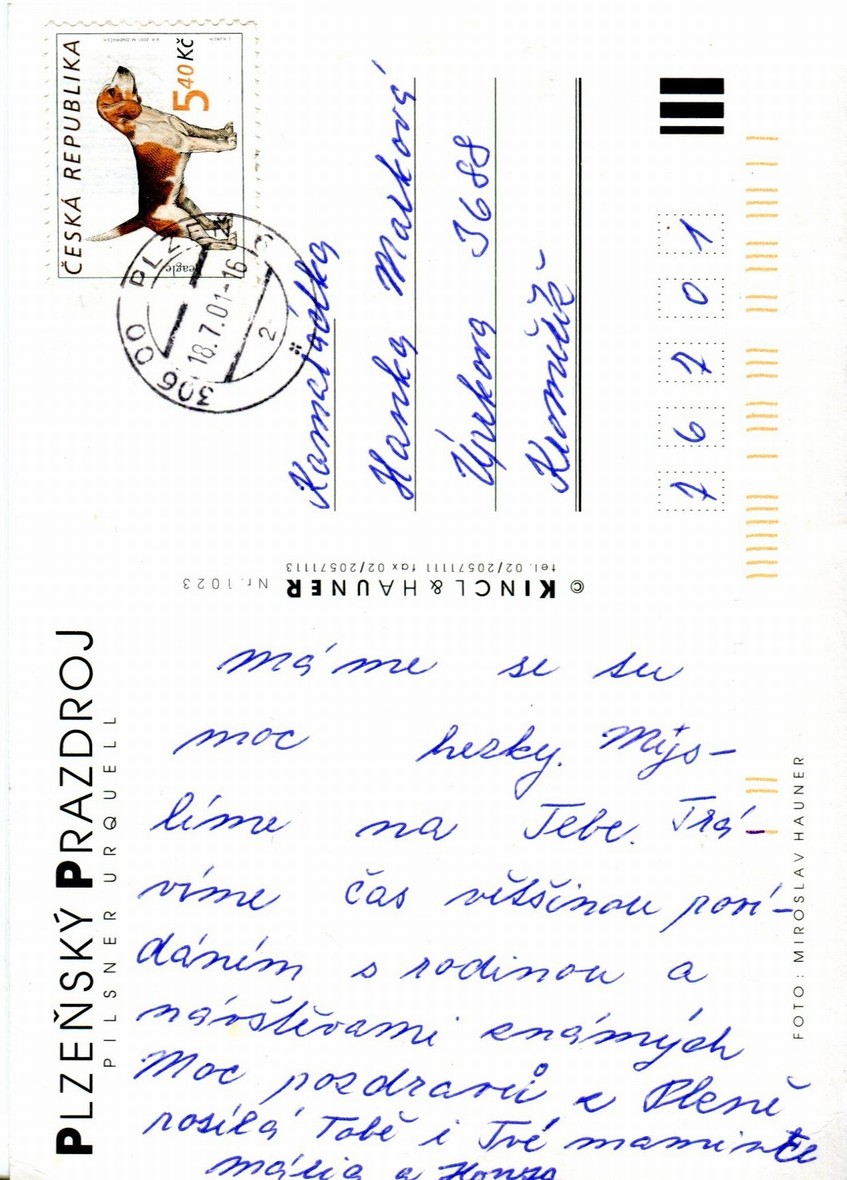 ČESKÁ REPUBLIKA
540 Kč
Beagle
306 00 PLZEŇ
18.7.01-16
2
Kamarádka
Hanka Marková
Úprkova 3688
Kroměříž
7 6 7 0 1
© KINCL & HAUNER Nr. 1023
tel. 02/20571111 fax 02/20571113
PLZEŇSKÝ PRAZDROJ
PILSNER URQUELL
máme se tu
moc hezky. Mys-
líme na Tebe. Trá-
víme čas většinou poví-
dáním s rodinou a
návštěvami známých
Moc pozdravů z Plzně
posílá Tobě i Tvé mamince
a Honza
FOTO: MIROSLAV HAUNER